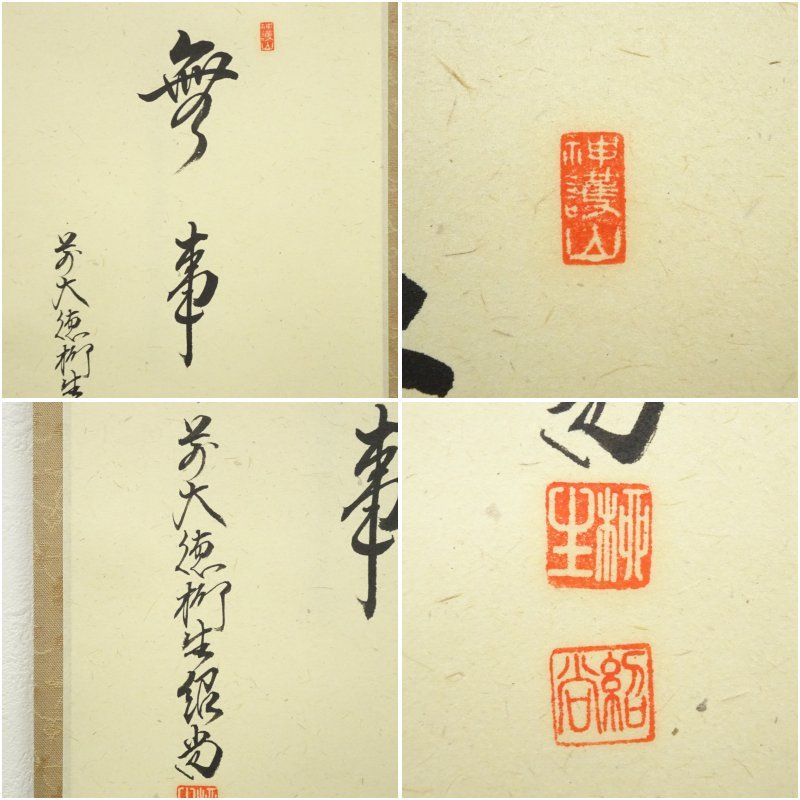 神護山
無
事
前大徳柳生
神護山
事
前大徳柳生紹尚
柳生
紹尚